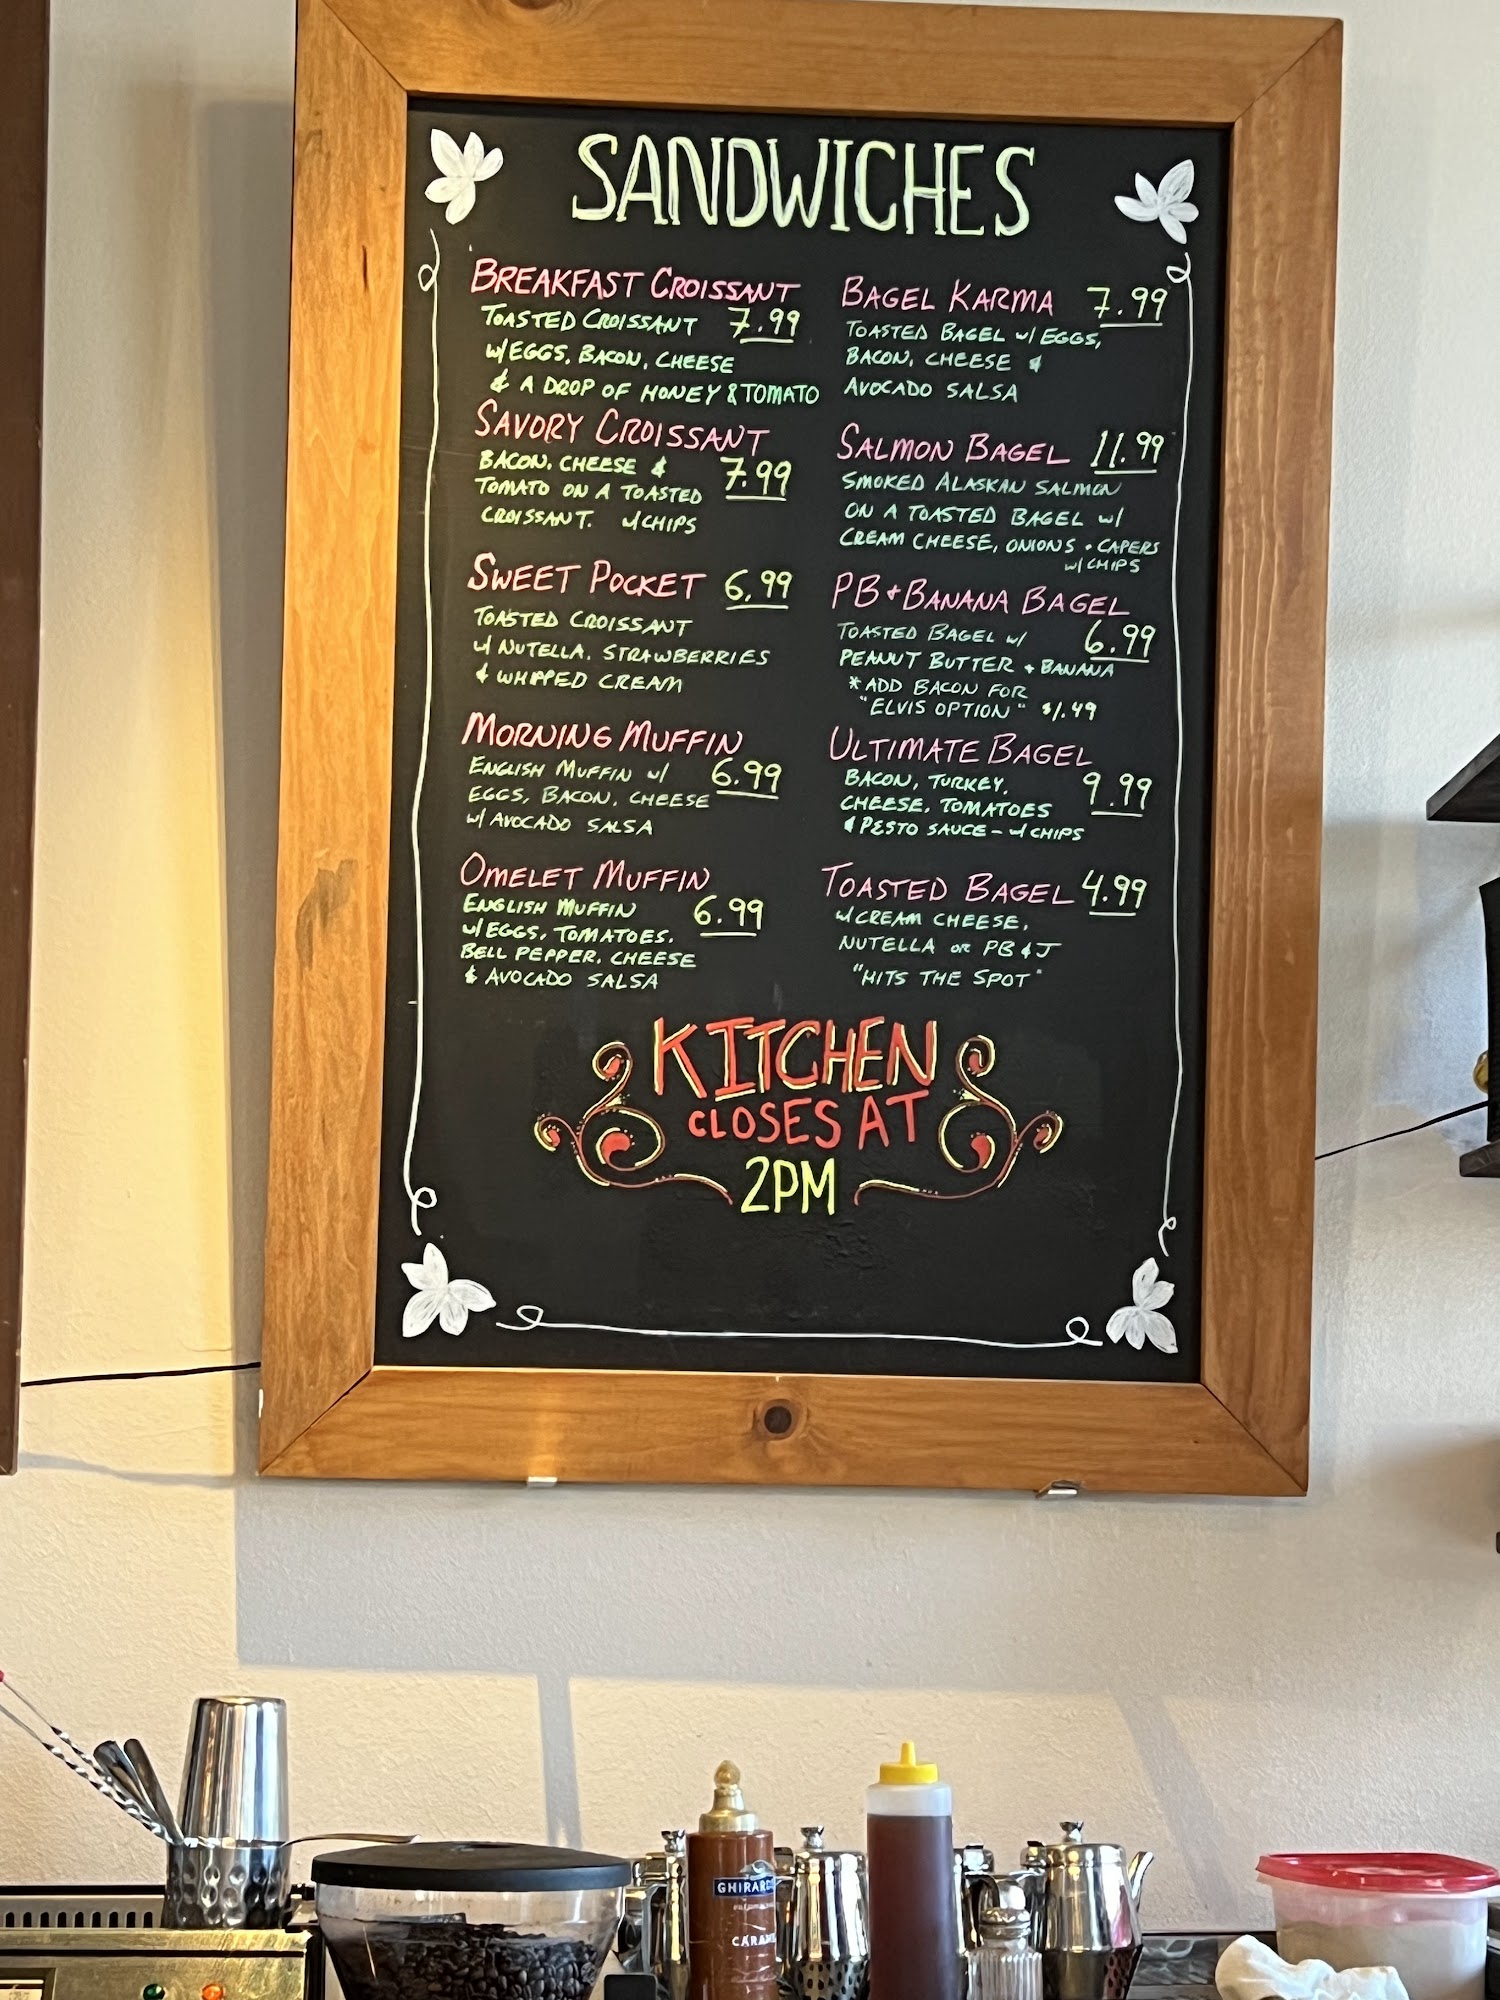 SANDWICHES
BREAKFAST CROISSANT
TOASTED CROISSANT 7.99
w/EGGS, BACON, CHEESE
& A DROP OF HONEY & TOMATO
SAVORY CROISSANT
BACON, CHEESE & 7.99
TOMATO ON A TOASTED
CROISSANT. w/CHIPS
SWEET POCKET 6.99
TOASTED CROISSANT
w/ NUTELLA, STRAWBERRIES
& WHIPPED CREAM
MORNING MUFFIN
ENGLISH MUFFIN w/ 6.99
EGGS, BACON, CHEESE
w/ AVOCADO SALSA
OMELET MUFFIN
ENGLISH MUFFIN 6.99
w/EGGS, TOMATOES,
BELL PEPPER, CHEESE
& AVOCADO SALSA
BAGEL KARMA 7.99
TOASTED BAGEL w/ EGGS,
BACON, CHEESE &
AVOCADO SALSA
SALMON BAGEL 11.99
SMOKED ALASKAN SALMON
ON A TOASTED BAGEL w/
CREAM CHEESE, ONIONS + CAPERS
w/ CHIPS
PB + BANANA BAGEL
TOASTED BAGEL w/ 6.99
PEANUT BUTTER + BANANA
* ADD BACON FOR
"ELVIS OPTION" $1.49
ULTIMATE BAGEL
BACON, TURKEY, 9.99
CHEESE, TOMATOES
& PESTO SAUCE - w/ CHIPS
TOASTED BAGEL 4.99
w/CREAM CHEESE,
NUTELLA OR PB & J
"HITS THE SPOT"
KITCHEN
CLOSES AT
2PM